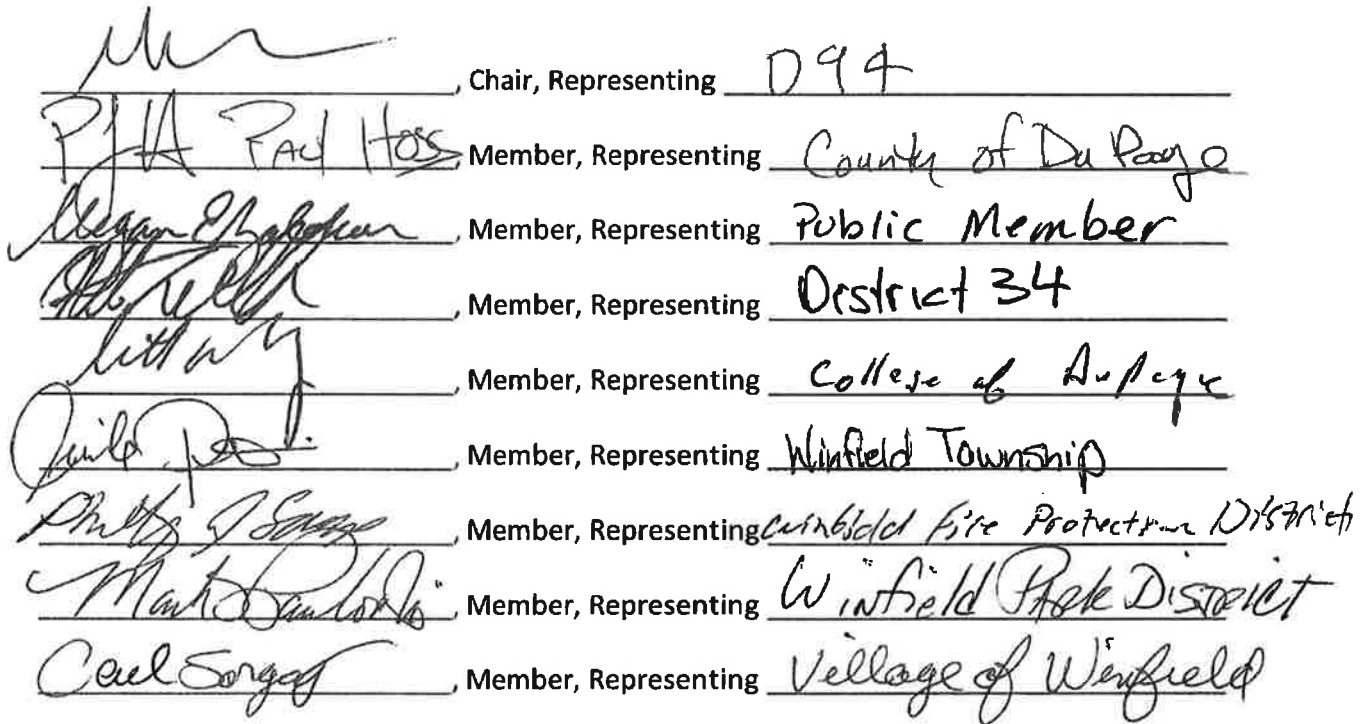 , Chair, Representing D94
Paul Hoss, Member, Representing County of Du Page
Megan, Member, Representing Public Member
, Member, Representing District 34
, Member, Representing College of DuPage
, Member, Representing Winfield Township
Phillip J, Member, Representing Winfield Fire Protection District
Mark, Member, Representing Winfield Park District
Carl Sorgatz, Member, Representing Village of Winfield